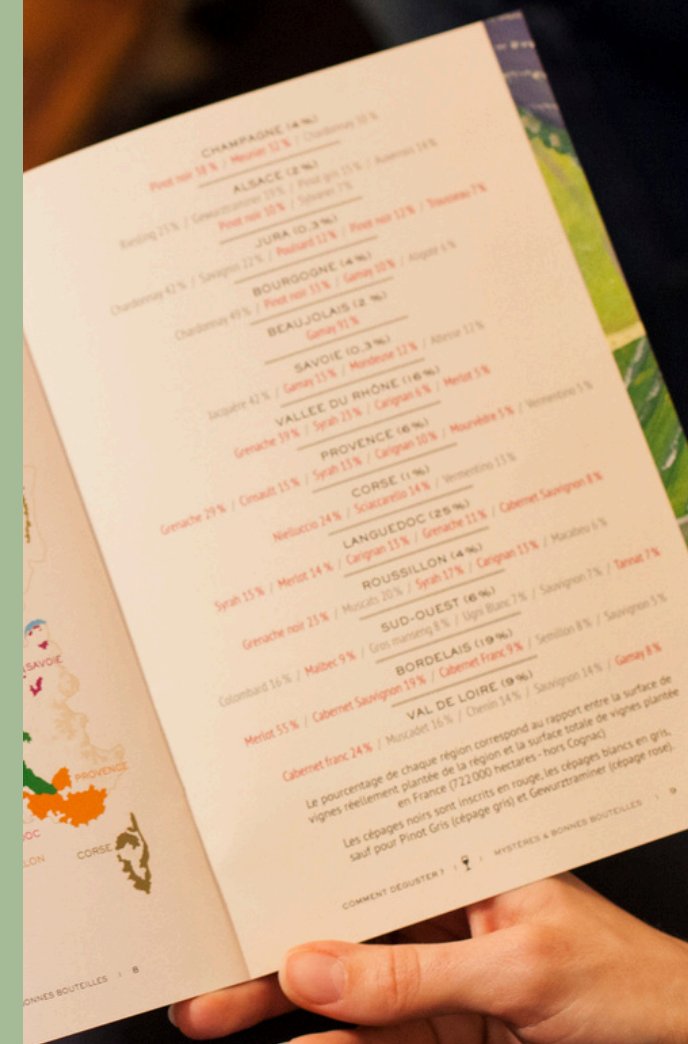 CHAMPAGNE (4%)
Pinot noir 38% / Meunier 32% / Chardonnay 30%
ALSACE (2%)
Riesling 23% / Gewurztraminer 19% / Pinot gris 15% / Auxerrois 14%
Pinot noir 10% / Sylvaner 7%
JURA (0,3%)
Chardonnay 42% / Savagnin 22% / Poulsard 12% / Pinot noir 12% / Trousseau 7%
BOURGOGNE (4%)
Chardonnay 49% / Pinot noir 35% / Gamay 10% / Aligoté 6%
BEAUJOLAIS (2%)
Gamay 91%
SAVOIE (0,3%)
Jacquère 42% / Gamay 15% / Mondeuse 12% / Altesse 12%
VALLEE DU RHÔNE (16%)
Grenache 39% / Syrah 23% / Carignan 6% / Merlot 5%
PROVENCE (6%)
Grenache 29% / Cinsault 15% / Syrah 13% / Carignan 10% / Mourvèdre 5% / Vermentino 5%
CORSE (1%)
Nielluccio 24% / Sciaccarello 14% / Vermentino 13%
LANGUEDOC (25%)
Syrah 15% / Merlot 14% / Carignan 13% / Grenache 11% / Cabernet Sauvignon 8%
ROUSSILLON (4%)
Grenache noir 23% / Muscats 20% / Syrah 17% / Carignan 13% / Macabeu 6%
SUD-OUEST (6%)
Colombard 16% / Malbec 9% / Gros manseng 8% / Ugni Blanc 7% / Sauvignon 7% / Tannat 7%
BORDELAIS (19%)
Merlot 55% / Cabernet Sauvignon 19% / Cabernet Franc 9% / Semillon 8% / Sauvignon 5%
VAL DE LOIRE (9%)
Cabernet franc 24% / Muscadet 16% / Chenin 14% / Sauvignon 14% / Gamay 8%
Le pourcentage de chaque région correspond au rapport entre la surface de
vignes réellement plantée de la région et la surface totale de vignes plantée
en France (722 000 hectares - hors Cognac)
Les cépages noirs sont inscrits en rouge, les cépages blancs en gris,
sauf pour Pinot Gris (cépage gris) et Gewurztraminer (cépage rose).
COMMENT DÉGUSTER ? | MYSTÈRES & BONNES BOUTEILLES | 9
SAVOIE
PROVENCE
OC
LON
CORSE
ONNES BOUTEILLES | 8